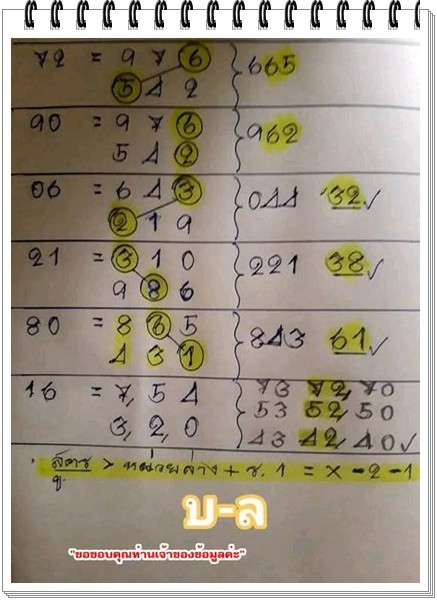 72 = 9 7 6 } 665
5 4 2
90 = 9 7 6 } 962
5 4 2
06 = 6 4 3 } 044 32 ✓
2 1 9
21 = 3 1 0 } 221 38 ✓
9 8 6
80 = 8 6 5 } 843 61 ✓
4 3 1
16 = 7, 5 4 } 73 72, 70
53 52, 50
3, 2, 0 43 42, 40 ✓
สูตร > หน่วยล่าง + ร. 1 = x - 2 - 1
บ.
บ-ล
"ขอขอบคุณท่านเจ้าของข้อมูลค่ะ"